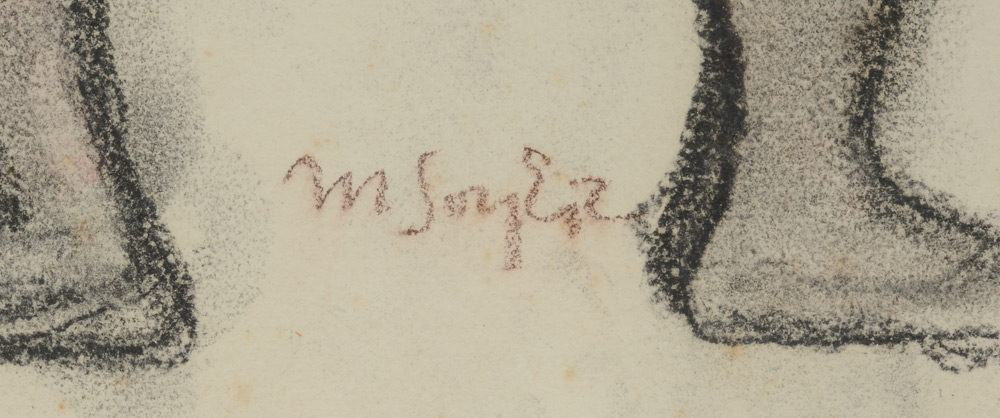 M Soyer